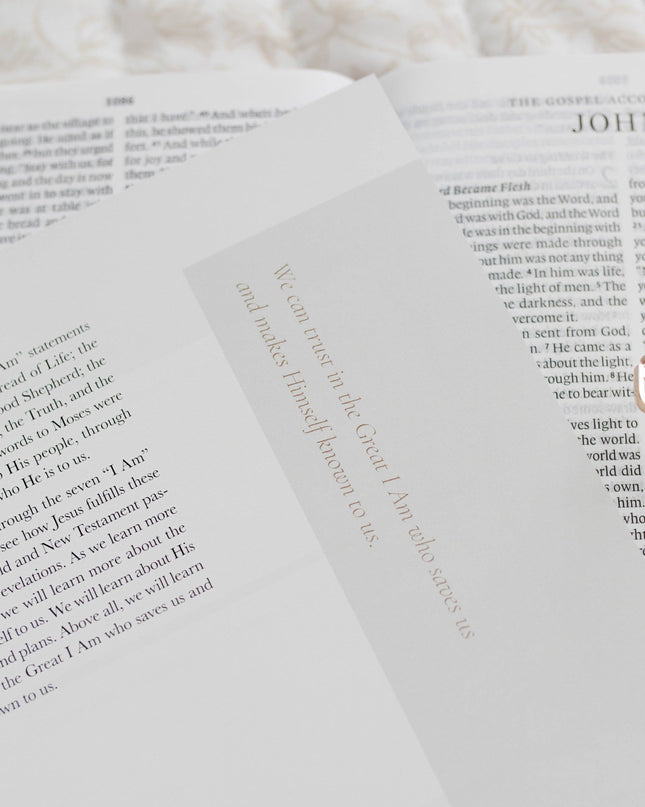 that I have." ⁴⁰ And when he
this, he showed them his
feet. ⁴¹ And while
for joy and
them
near to the village to
going. He acted as if
ther, ²⁹ but they urged
ng, "Stay with us, for
g and the day is now
went in to stay with
was at table
bread and
THE GOSPEL ACCO
JOHN
rd Became Flesh
beginning was the Word, and
d was with God, and the Word
He was in the beginning with
ings were made through
out him was not any thing
made. ⁴ In him was life,
the light of men. ⁵ The
he darkness, and the
vercome it.
n sent from God,
n. ⁷ He came as a
about the light,
rough him. ⁸ He
me to bear wit-
ives light to
the world.
world was
orld did
s own,
him.
who
We can trust in the Great I Am who saves us
and makes Himself known to us.
Am" statements
read of Life; the
ood Shepherd; the
, the Truth, and the
words to Moses were
o His people, through
who He is to us.
rough the seven "I Am"
see how Jesus fulfills these
ld and New Testament pas-
evelations. As we learn more
we will learn more about the
elf to us. We will learn about His
nd plans. Above all, we will learn
the Great I Am who saves us and
wn to us.